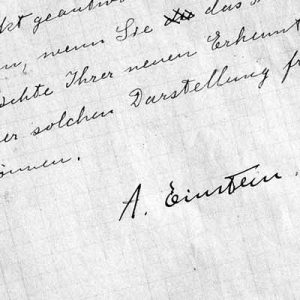 kt geantwo
n, wenn Sie das
chte Ihrer neuen Erkennt
er solchen Darstellung fr
önnen.
A. Einstein.